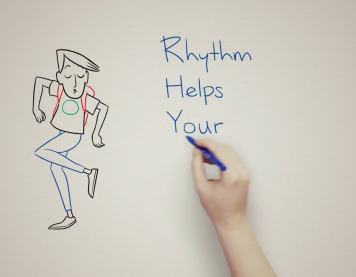 Rhythm
Helps
Your